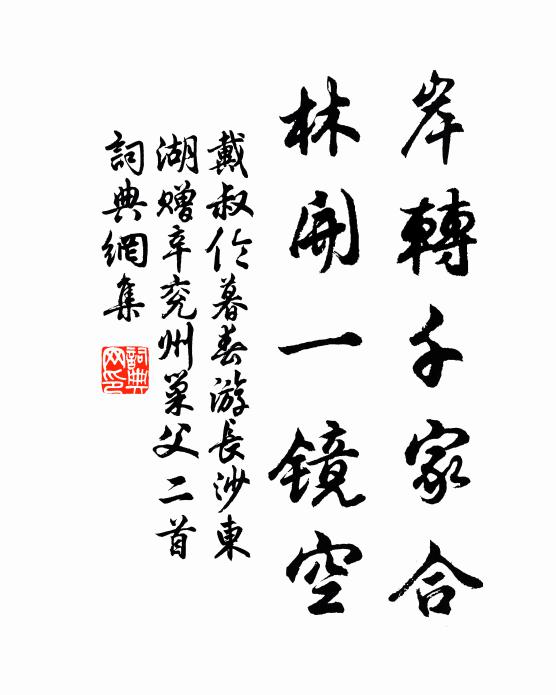 岸轉千家合
林開一镜空
戴叔伦暮春游長沙東
湖赠辛兖州巢父二首
詞典網集
詞典網印